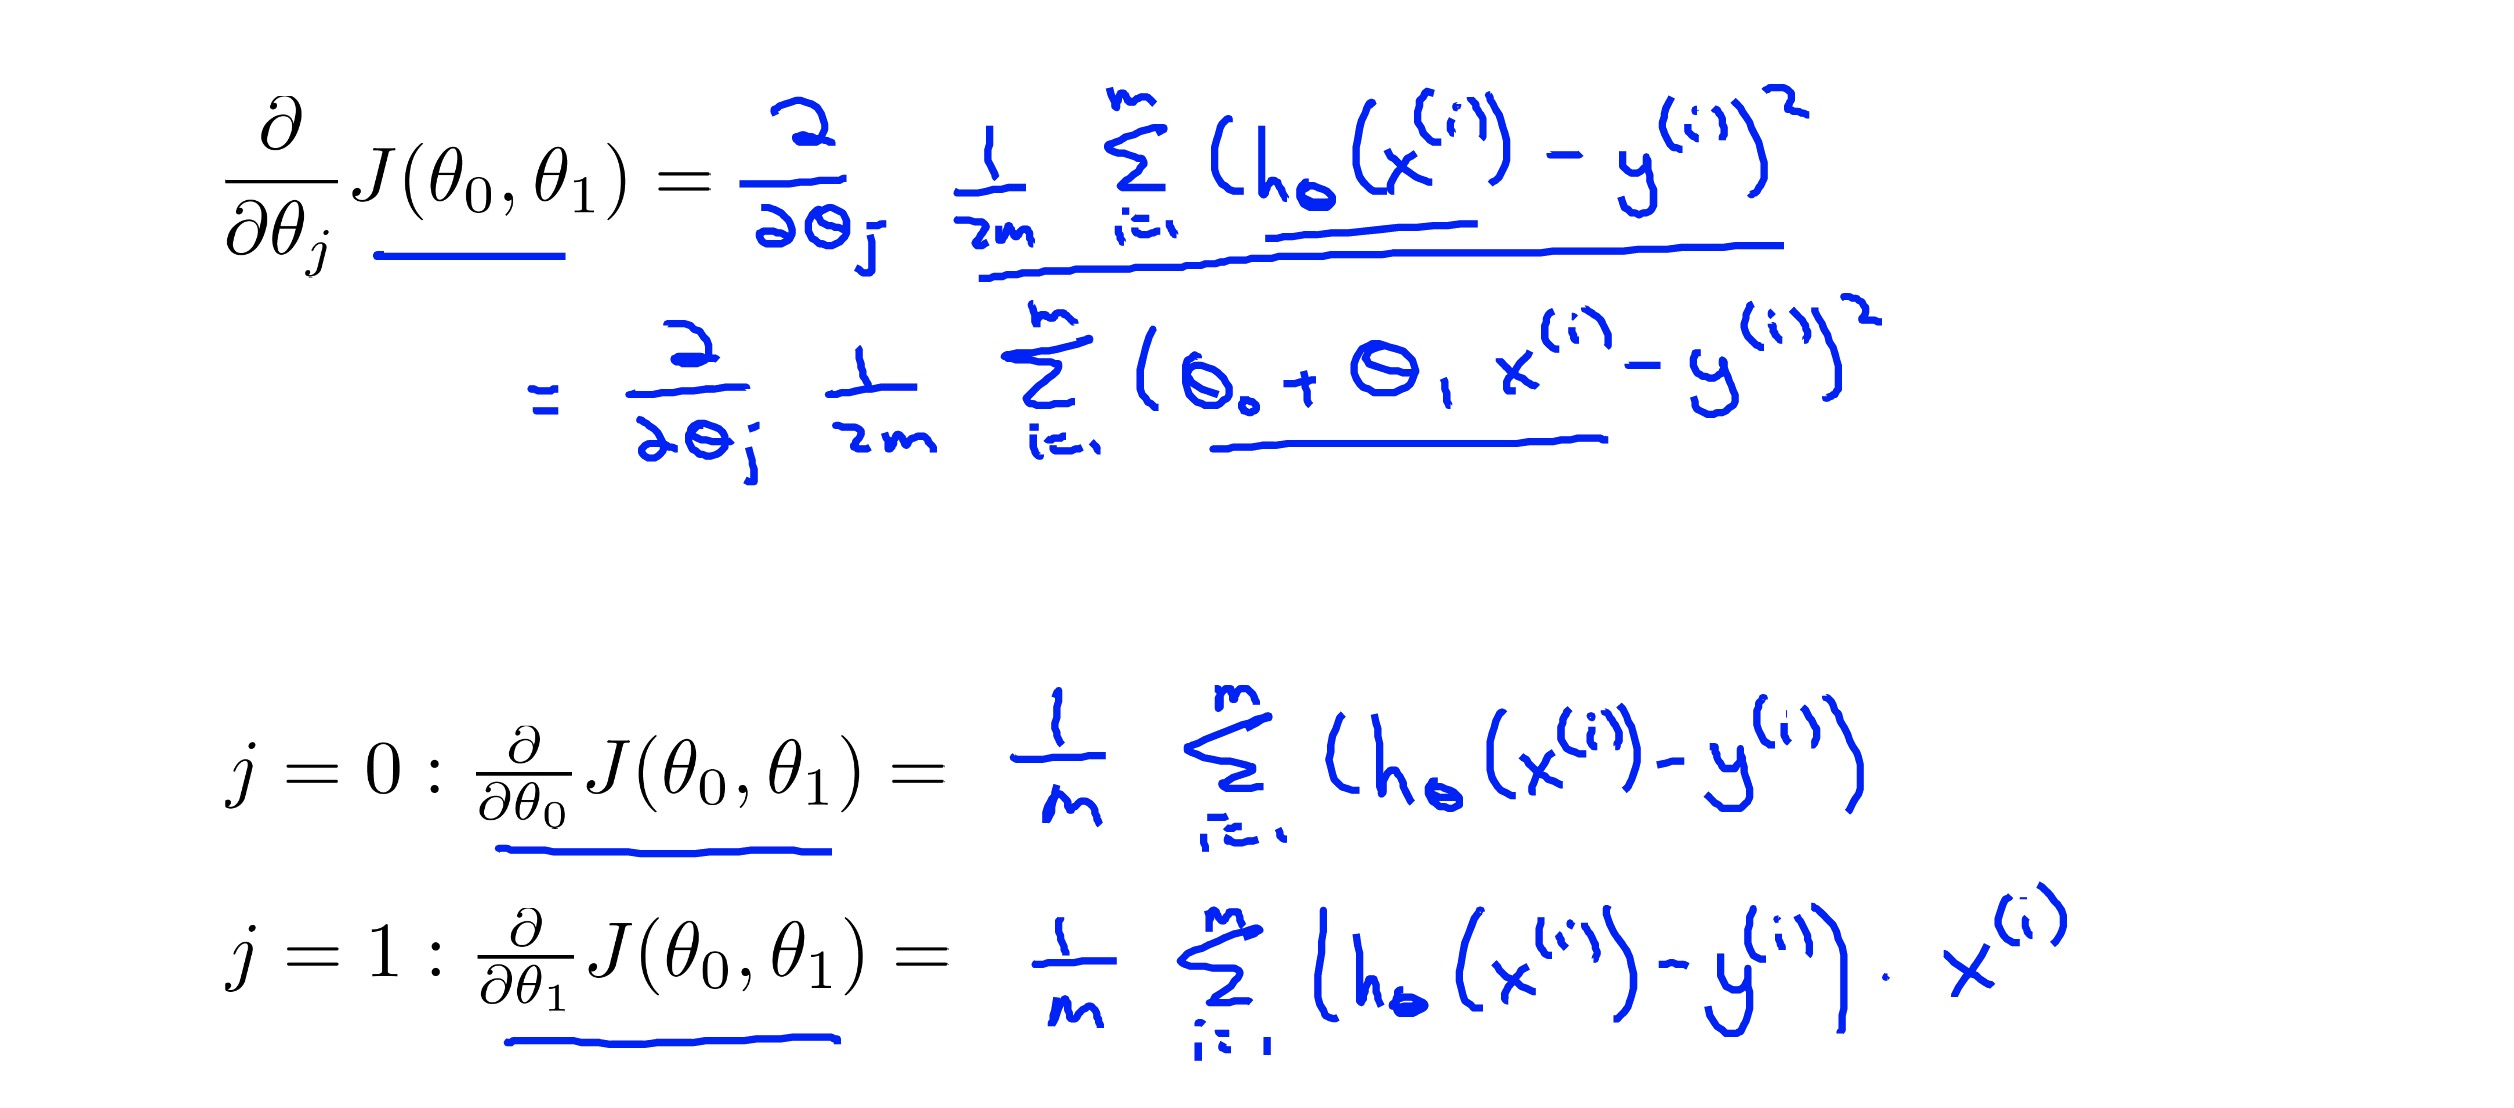 ∂/∂θ_j J(θ_0, θ_1) = ∂/∂θ_j 1/2m Σ_{i=1}^{m} (h_θ(x^{(i)}) − y^{(i)})^2
= ∂/∂θ_j 1/2m Σ_{i=1}^{m} (θ_0 + θ_1 x^{(i)} − y^{(i)})^2
j = 0 : ∂/∂θ_0 J(θ_0, θ_1) = 1/m Σ_{i=1}^{m} (h_θ(x^{(i)}) − y^{(i)})
j = 1 : ∂/∂θ_1 J(θ_0, θ_1) = 1/m Σ_{i=1}^{m} (h_θ(x^{(i)}) − y^{(i)}) · x^{(i)}